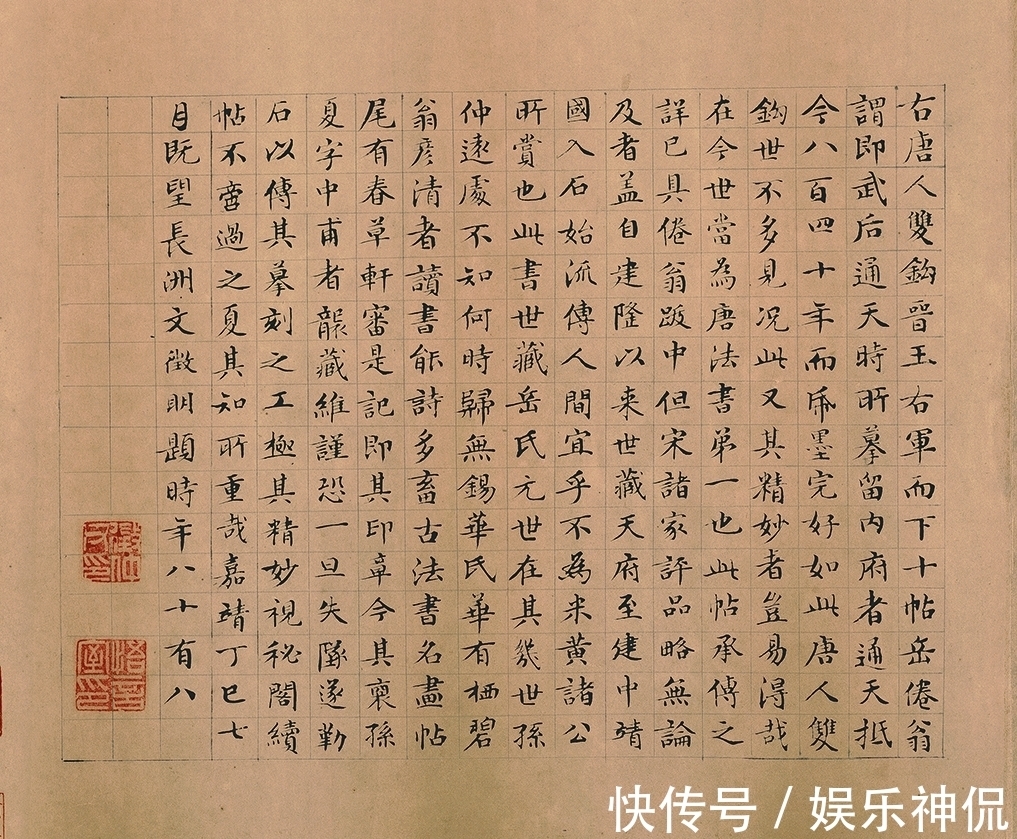 右唐人雙鈎晉王右軍而下十帖岳倦翁
謂即武后通天時所摹留內府者通天抵
今八百四十年而帋墨完好如此唐人雙
鈎世不多見况此又其精妙者豈易淂哉
在今世當為唐法書弟一也此帖承傳之
詳已具倦翁跋中但宋諸家評品略無論
及者盖自建隆以来世藏天府至建中靖
國入石始流傳人間宜乎不為米黃諸公
所賞也此書世藏岳氏元世在其幾世孫
仲遠處不知何時歸無錫華氏華有栖碧
翁彥清者讀書能詩多畜古法書名畫帖
尾有春草軒審是記即其印章今其裔孫
夏字中甫者襲藏維謹恐一旦失墜遂勒
石以傳其摹刻之工極其精妙視秘閣續
帖不啻過之夏其知所重哉嘉靖丁巳七
月既望長洲文徵明題時年八十有八
悟言室印
快传号 / 娱乐神侃